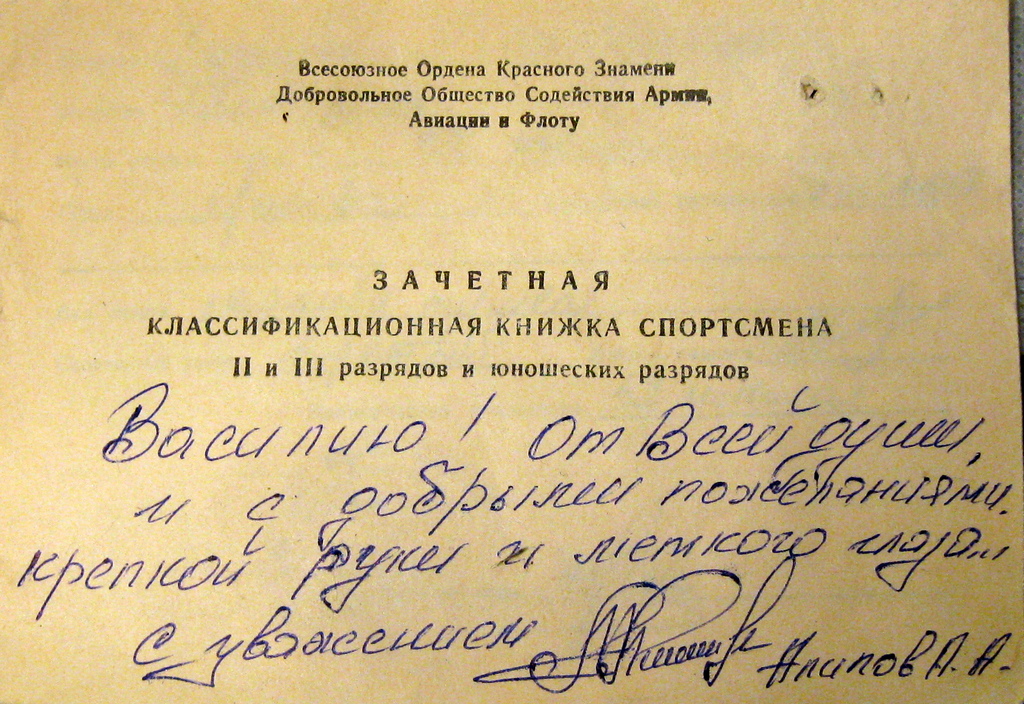 Всесоюзное Ордена Красного Знамени
Добровольное Общество Содействия Армии,
Авиации и Флоту
ЗАЧЕТНАЯ
КЛАССИФИКАЦИОННАЯ КНИЖКА СПОРТСМЕНА
II и III разрядов и юношеских разрядов
Василию! От Всей души,
и с добрыми пожеланиями.
крепкой руки и меткого глаза.
с уважением Алипов А. А.